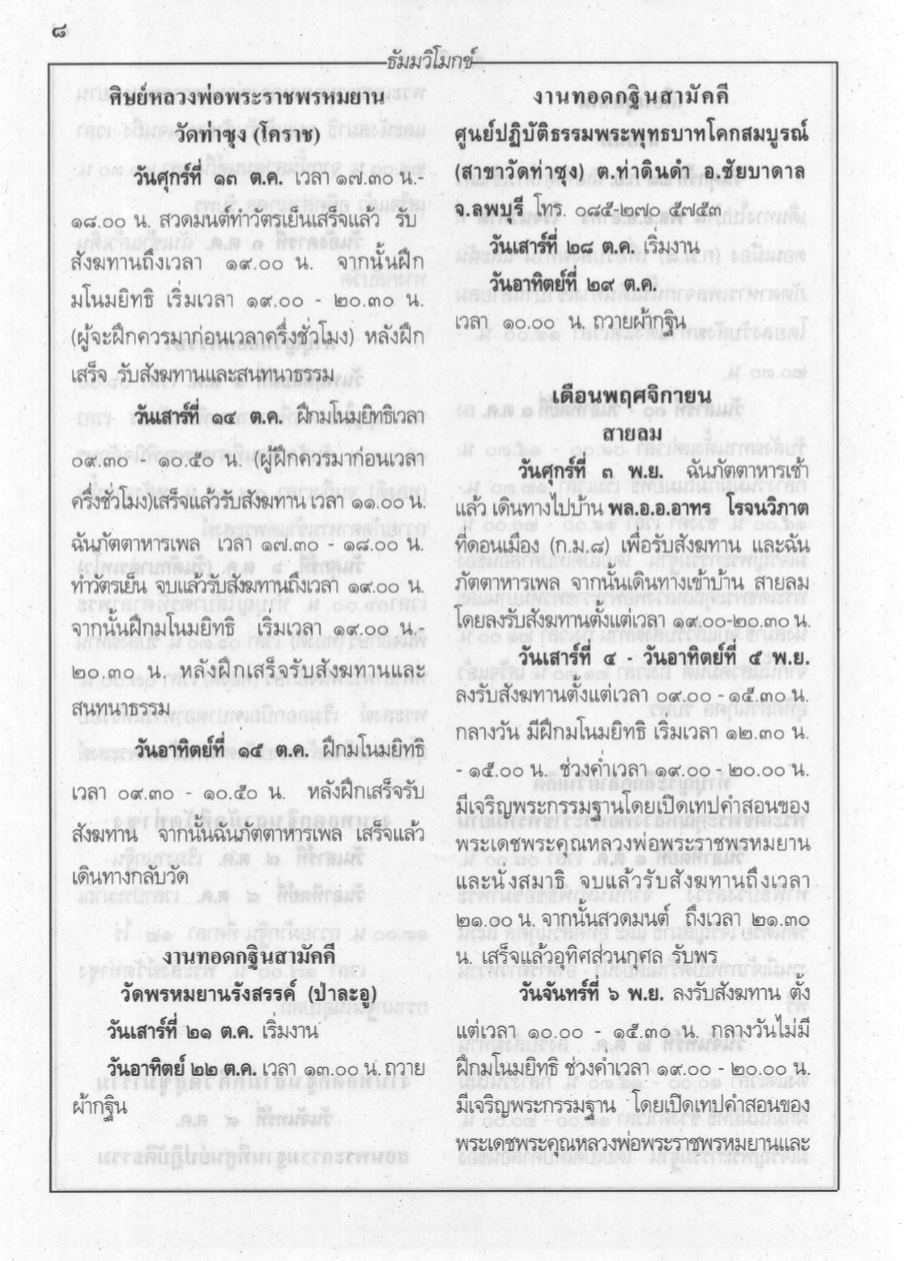 ๘
ธัมมวิโมกข์
ศิษย์หลวงพ่อพระราชพรหมยาน
วัดท่าซุง (โคราช)
วันศุกร์ที่ ๑๓ ต.ค. เวลา ๑๗.๓๐ น.-
๑๘.๐๐ น. สวดมนต์ทำวัตรเย็นเสร็จแล้ว รับ
สังฆทานถึงเวลา ๑๙.๐๐ น. จากนั้นฝึก
มโนมยิทธิ เริ่มเวลา ๑๙.๐๐ - ๒๐.๓๐ น.
(ผู้จะฝึกควรมาก่อนเวลาครึ่งชั่วโมง) หลังฝึก
เสร็จ รับสังฆทานและสนทนาธรรม
วันเสาร์ที่ ๑๔ ต.ค. ฝึกมโนมยิทธิเวลา
๐๙.๓๐ - ๑๐.๕๐ น. (ผู้ฝึกควรมาก่อนเวลา
ครึ่งชั่วโมง)เสร็จแล้วรับสังฆทาน เวลา ๑๑.๐๐ น.
ฉันภัตตาหารเพล เวลา ๑๗.๓๐ - ๑๘.๐๐ น.
ทำวัตรเย็น จบแล้วรับสังฆทานถึงเวลา ๑๙.๐๐ น.
จากนั้นฝึกมโนมยิทธิ เริ่มเวลา ๑๙.๐๐ น.-
๒๐.๓๐ น. หลังฝึกเสร็จรับสังฆทานและ
สนทนาธรรม
วันอาทิตย์ที่ ๑๕ ต.ค. ฝึกมโนมยิทธิ
เวลา ๐๙.๓๐ - ๑๐.๕๐ น. หลังฝึกเสร็จรับ
สังฆทาน จากนั้นฉันภัตตาหารเพล เสร็จแล้ว
เดินทางกลับวัด
งานทอดกฐินสามัคคี
วัดพรหมยานรังสรรค์ (ป่าละอู)
วันเสาร์ที่ ๒๑ ต.ค. เริ่มงาน
วันอาทิตย์ ๒๒ ต.ค. เวลา ๑๓.๐๐ น. ถวาย
ผ้ากฐิน
งานทอดกฐินสามัคคี
ศูนย์ปฏิบัติธรรมพระพุทธบาทโคกสมบูรณ์
(สาขาวัดท่าซุง) ต.ท่าดินดำ อ.ชัยบาดาล
จ.ลพบุรี โทร. ๐๘๕-๒๗๐ ๕๗๕๓
วันเสาร์ที่ ๒๘ ต.ค. เริ่มงาน
วันอาทิตย์ที่ ๒๙ ต.ค.
เวลา ๑๐.๐๐ น. ถวายผ้ากฐิน
เดือนพฤศจิกายน
สายลม
วันศุกร์ที่ ๓ พ.ย. ฉันภัตตาหารเช้า
แล้ว เดินทางไปบ้าน พล.อ.อ.อาทร โรจนวิภาต
ที่ดอนเมือง (ก.ม.๘) เพื่อรับสังฆทาน และฉัน
ภัตตาหารเพล จากนั้นเดินทางเข้าบ้าน สายลม
โดยลงรับสังฆทานตั้งแต่เวลา ๑๙.๐๐-๒๐.๓๐ น.
วันเสาร์ที่ ๔ - วันอาทิตย์ที่ ๕ พ.ย.
ลงรับสังฆทานตั้งแต่เวลา ๐๙.๐๐ - ๑๕.๓๐ น.
กลางวัน มีฝึกมโนมยิทธิ เริ่มเวลา ๑๒.๓๐ น.
- ๑๕.๐๐ น. ช่วงค่ำเวลา ๑๙.๐๐ - ๒๐.๐๐ น.
มีเจริญพระกรรมฐานโดยเปิดเทปคำสอนของ
พระเดชพระคุณหลวงพ่อพระราชพรหมยาน
และนั่งสมาธิ จบแล้วรับสังฆทานถึงเวลา
๒๑.๐๐ น. จากนั้นสวดมนต์ ถึงเวลา ๒๑.๓๐
น. เสร็จแล้วอุทิศส่วนกุศล รับพร
วันจันทร์ที่ ๖ พ.ย. ลงรับสังฆทาน ตั้ง
แต่เวลา ๑๐.๐๐ - ๑๕.๓๐ น. กลางวันไม่มี
ฝึกมโนมยิทธิ ช่วงค่ำเวลา ๑๙.๐๐ - ๒๐.๐๐ น.
มีเจริญพระกรรมฐาน โดยเปิดเทปคำสอนของ
พระเดชพระคุณหลวงพ่อพระราชพรหมยานและ